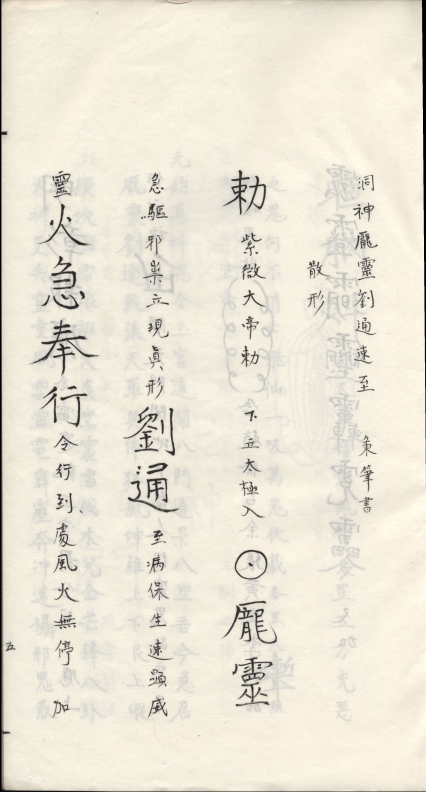 洞神龐靈劉通速至 秉筆書
散形
勅 紫微大帝勅 下立太極入 龐靈
急驅邪祟立現真形 劉通 至病保生速顯威
靈 火急奉行 令行到處風火無停 加
五